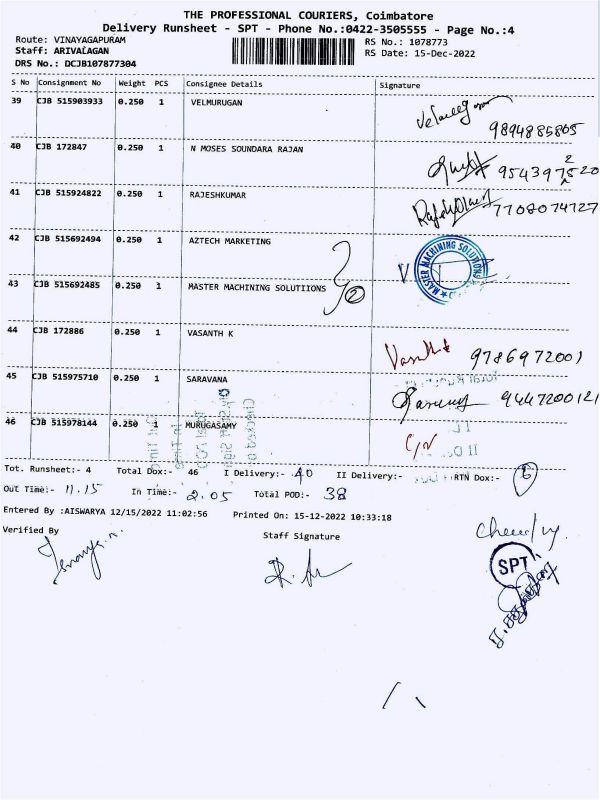 THE PROFESSIONAL COURIERS, Coimbatore
Delivery Runsheet - SPT - Phone No.:0422-3505555 - Page No.:4
Route: VINAYAGAPURAM
RS No.: 1078773
Staff: ARIVALAGAN
RS Date: 15-Dec-2022
DRS No.: DCJB107877304
S No Consignment No Weight PCS Consignee Details Signature
39 CJB 515903933 0.250 1 VELMURUGAN
9894885865
40 CJB 172847 0.250 1 N MOSES SOUNDARA RAJAN
41 CJB 515924822 0.250 1 RAJESHKUMAR
7708074727
42 CJB 515692494 0.250 1 AZTECH MARKETING
MASTER MACHINING SOLUTIONS
43 CJB 515692485 0.250 1 MASTER MACHINING SOLUTIIONS 2
44 CJB 172886 0.250 1 VASANTH K
Vasanth 9786972001
45 CJB 515975710 0.250 1 SARAVANA
9447200121
46 CJB 515978144 0.250 1 MURUGASAMY
C/N
Tot. Runsheet:- 4 Total Dox:- 46 I Delivery:- 40 II Delivery:- RTN Dox:- 6
Out Time:- 11.15 In Time:- 2.05 Total POD:- 38
Entered By :AISWARYA 12/15/2022 11:02:56 Printed On: 15-12-2022 10:33:18
Verified By Staff Signature
SPT